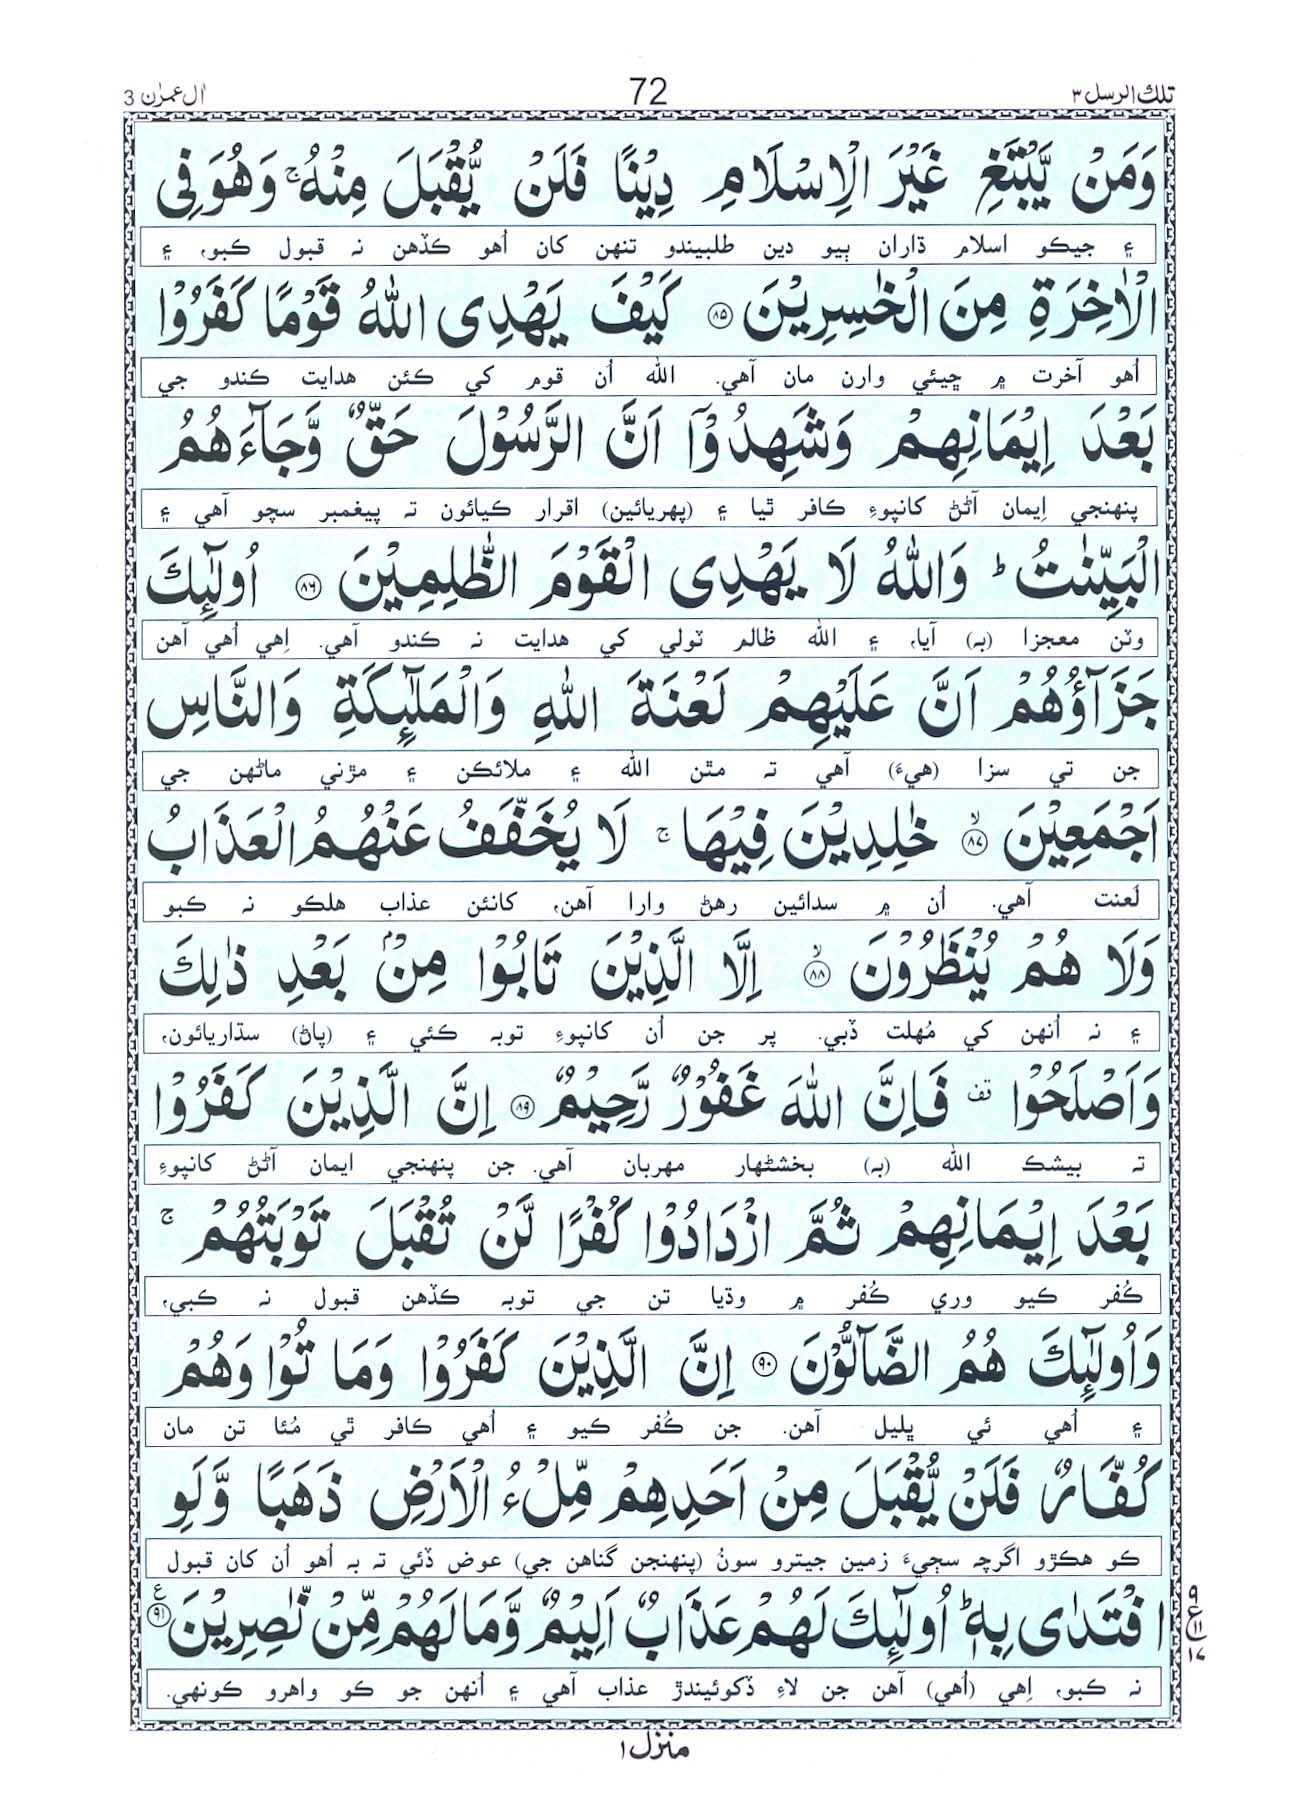 تلك الرسل ٣
72
اٰل عمرٰن 3
وَمَنْ يَّبْتَغِ غَيْرَ الْاِسْلَامِ دِيْنًا فَلَنْ يُّقْبَلَ مِنْهُ ۚ وَهُوَ فِى
۽ جيڪو اسلام ڌاران ٻيو دين طلبيندو تنهن کان اُهو ڪڏهن نہ قبول ڪبو، ۽
الْاٰخِرَةِ مِنَ الْخٰسِرِيْنَ ﴿٨٥﴾ كَيْفَ يَهْدِى اللّٰهُ قَوْمًا كَفَرُوْا
اُهو آخرت ۾ ڇيئي وارن مان آهي. الله اُن قوم کي ڪئن هدايت ڪندو جي
بَعْدَ اِيْمَانِهِمْ وَشَهِدُوْٓا اَنَّ الرَّسُوْلَ حَقٌّ وَّجَآءَهُمُ
پنهنجي اِيمان آڻڻ کانپوءِ ڪافر ٿيا ۽ (پهريائين) اقرار ڪيائون تہ پيغمبر سچو آهي ۽
الْبَيِّنٰتُ ؕ وَاللّٰهُ لَا يَهْدِى الْقَوْمَ الظّٰلِمِيْنَ ﴿٨٦﴾ اُولٰٓئِكَ
وٽن معجزا (بہ) آيا، ۽ الله ظالم ٽولي کي هدايت نہ ڪندو آهي. اِهي اُهي آهن
جَزَآؤُهُمْ اَنَّ عَلَيْهِمْ لَعْنَةَ اللّٰهِ وَالْمَلٰٓئِكَةِ وَالنَّاسِ
جن تي سزا (هيءَ) آهي تہ مٿن الله ۽ ملائڪن ۽ مڙني ماڻهن جي
اَجْمَعِيْنَ ۙ﴿٨٧﴾ خٰلِدِيْنَ فِيْهَا ۚ لَا يُخَفَّفُ عَنْهُمُ الْعَذَابُ
لَعنت آهي. اُن ۾ سدائين رهڻ وارا آهن، کانئن عذاب هلڪو نہ ڪبو
وَلَا هُمْ يُنْظَرُوْنَ ۙ﴿٨٨﴾ اِلَّا الَّذِيْنَ تَابُوْا مِنْۢ بَعْدِ ذٰلِكَ
۽ نہ اُنهن کي مُهلت ڏبي. پر جن اُن کانپوءِ توبہ ڪئي ۽ (پاڻ) سڌاريائون،
وَاَصْلَحُوْا ۫ قف فَاِنَّ اللّٰهَ غَفُوْرٌ رَّحِيْمٌ ﴿٨٩﴾ اِنَّ الَّذِيْنَ كَفَرُوْا
تہ بيشڪ الله (بہ) بخشڻهار مهربان آهي. جن پنهنجي ايمان آڻڻ کانپوءِ
بَعْدَ اِيْمَانِهِمْ ثُمَّ ازْدَادُوْا كُفْرًا لَّنْ تُقْبَلَ تَوْبَتُهُمْ ۚ
ڪُفر ڪيو وري ڪُفر ۾ وڌيا تن جي توبہ ڪڏهن قبول نہ ڪبي،
وَاُولٰٓئِكَ هُمُ الضَّآلُّوْنَ ﴿٩٠﴾ اِنَّ الَّذِيْنَ كَفَرُوْا وَمَا تُوْا وَهُمْ
۽ اُهي ئي ڀليل آهن. جن ڪُفر ڪيو ۽ اُهي ڪافر ٿي مُئا تن مان
كُفَّارٌ فَلَنْ يُّقْبَلَ مِنْ اَحَدِهِمْ مِّلْءُ الْاَرْضِ ذَهَبًا وَّلَوِ
ڪو هڪڙو اگرچہ سڄيءَ زمين جيترو سونُ (پنهنجن گناهن جي) عوض ڏئي تہ بہ اُهو اُن کان قبول
افْتَدٰى بِهٖ ؕ اُولٰٓئِكَ لَهُمْ عَذَابٌ اَلِيْمٌ وَّمَا لَهُمْ مِّنْ نّٰصِرِيْنَ ﴿٩١﴾ ع
٩ ع ١١ ١٧
نہ ڪبو، اِهي (اُهي) آهن جن لاءِ ڏکوئيندڙ عذاب آهي ۽ اُنهن جو ڪو واهرو ڪونهي.
منزل ١